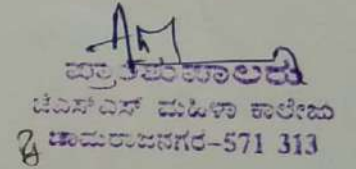 ಪ್ರಾಂಶುಪಾಲರು
ಜೆಎಸ್‌ಎಸ್ ಮಹಿಳಾ ಕಾಲೇಜು
ಚಾಮರಾಜನಗರ-571 313